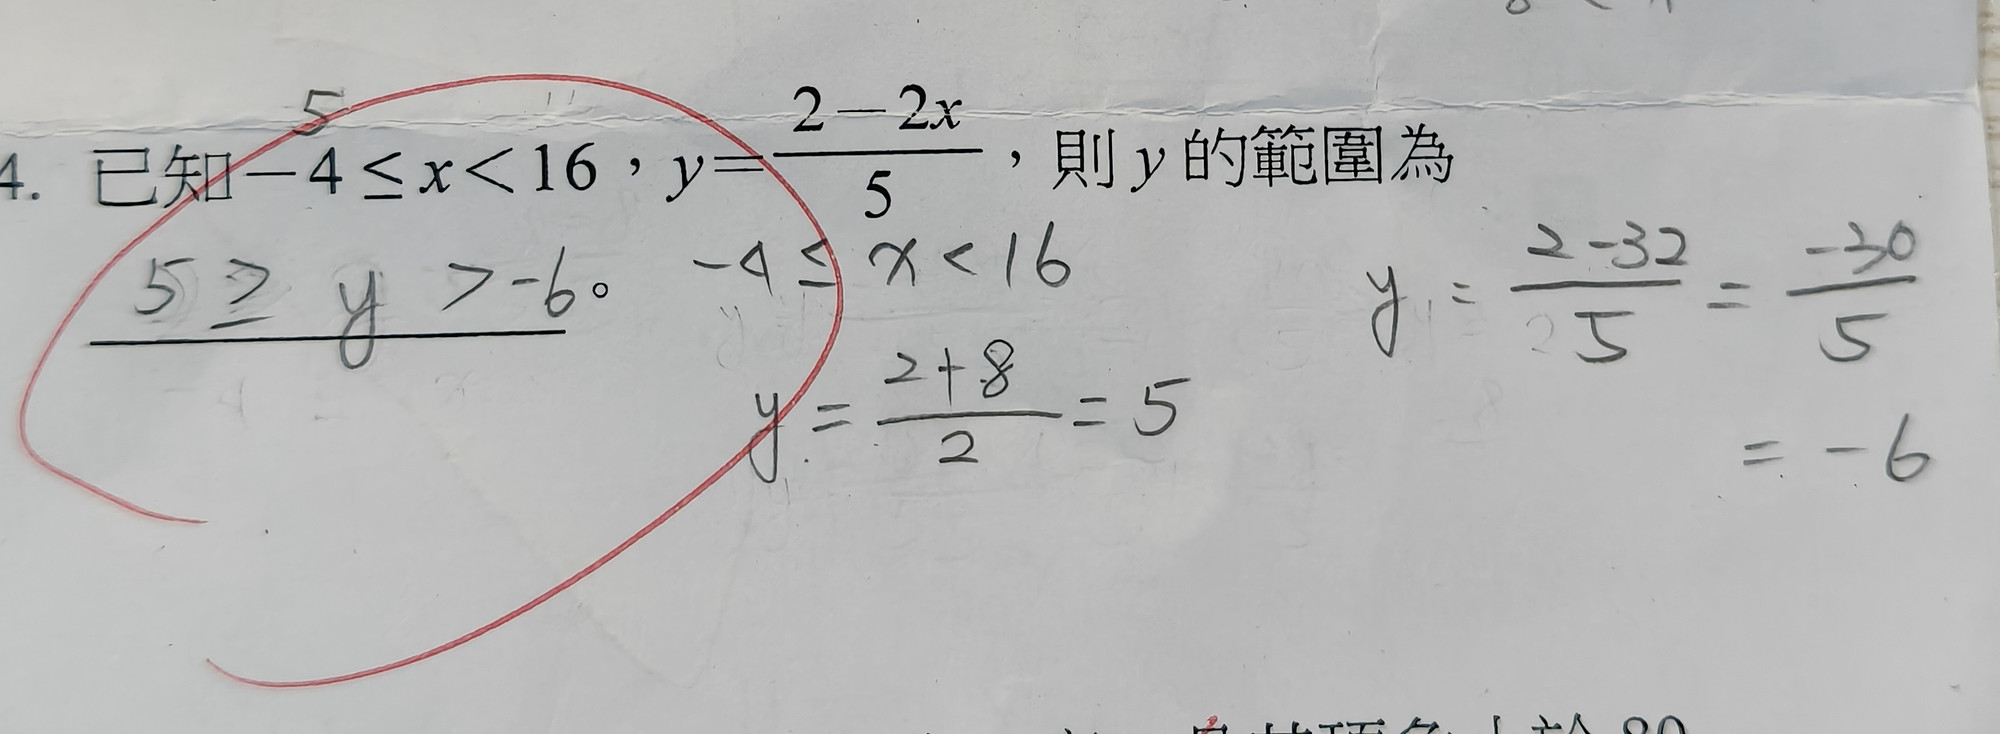 5
4. 已知−4≤x<16，y=\frac{2−2x}{5}，則y的範圍為
5 ≥ y > -6。
-4 ≤ x < 16
y = \frac{2+8}{2} = 5
y = \frac{2-32}{5} = \frac{-30}{5}
= -6